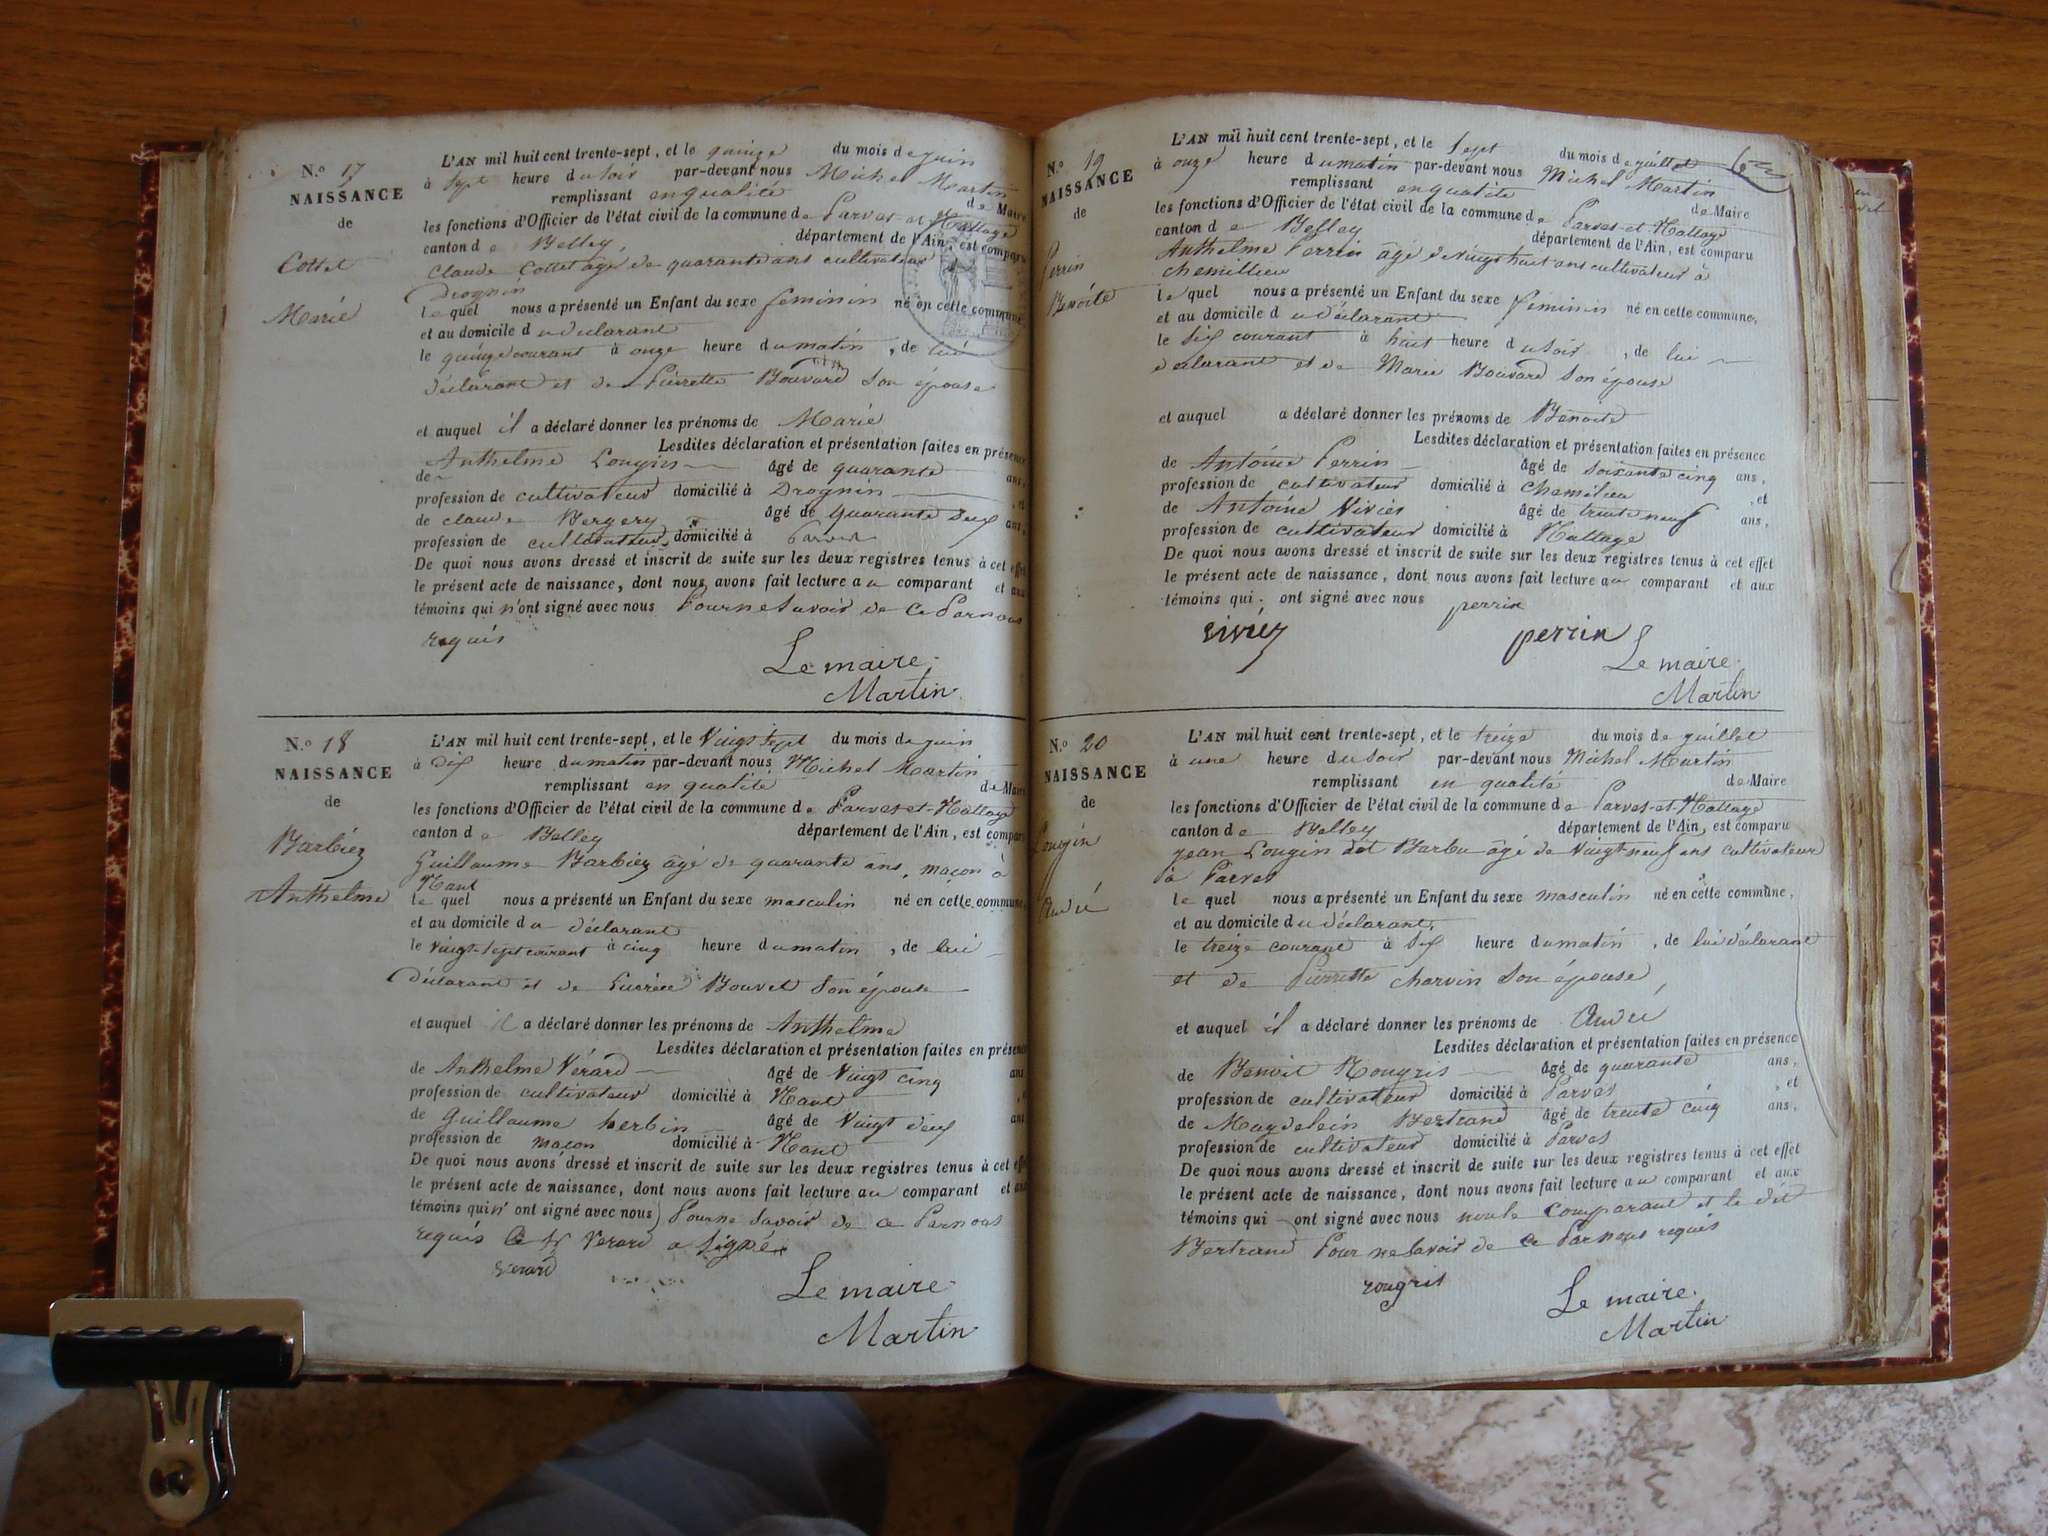 N.° 17
NAISSANCE
de
Cottet
Marie
L'AN mil huit cent trente-sept, et le quinze du mois de juin
à sept heure du soir par-devant nous Michel Martin
remplissant en qualité de Maire
les fonctions d'Officier de l'état civil de la commune de Parves-et-Nattage
canton de Belley, département de l'Ain, est comparu
Claude Cottet âgé de quarante ans cultivateur à
Drognin
lequel nous a présenté un Enfant du sexe feminin né en cette commune
et au domicile du declarant
le quinze courant à onze heure du matin, de lui
déclarant et de Pierrette Bouvard son épouse
et auquel il a déclaré donner les prénoms de Marie
Lesdites déclaration et présentation faites en présence
de Anthelme Lougin âgé de quarante ans,
profession de cultivateur domicilié à Drognin, et
de claude Bergery âgé de quarante deux ans,
profession de cultivateur, domicilié à Parves
De quoi nous avons dressé et inscrit de suite sur les deux registres tenus à cet effet
le présent acte de naissance, dont nous avons fait lecture au comparant et aux
témoins qui n'ont signé avec nous Pour ne savoir de ce Par nous
requis
Le maire.
Martin
N.° 18
NAISSANCE
de
Barbiez
Anthelme
L'AN mil huit cent trente-sept, et le Vingt sept du mois de juin
à dix heure du matin par-devant nous Michel Martin
remplissant en qualité de Maire
les fonctions d'Officier de l'état civil de la commune de Parves-et-Nattage
canton de Belley département de l'Ain, est comparu
Guillaume Barbiez âgé de quarante ans, maçon à
Nant
le quel nous a présenté un Enfant du sexe masculin né en cette commune,
et au domicile du déclarant
le vingt-sept courant à cinq heure du matin, de lui
Déclarant et de Lucrèce Bouvet son épouse
et auquel il a déclaré donner les prénoms de Anthelme
Lesdites déclaration et présentation faites en présence
de Anthelme Vérard âgé de Vingt cinq ans
profession de cultivateur domicilié à Nant
de Guillaume herbin âgé de Vingt deux ans
profession de maçon domicilié à Nant
De quoi nous avons dressé et inscrit de suite sur les deux registres tenus à cet effet
le présent acte de naissance, dont nous avons fait lecture au comparant et aux
témoins qui n'ont signé avec nous Pour ne savoir de ce Par nous
requis Verard a signé
verard
Le maire
Martin
N.° 19
NAISSANCE
de
Perrin
Benoite
L'AN mil huit cent trente-sept, et le sept du mois de juillet
à onze heure du matin par-devant nous Michel Martin
remplissant en qualité de Maire
les fonctions d'Officier de l'état civil de la commune de Parves-et-Nattage
canton de Belley département de l'Ain, est comparu
Anthelme Perrin âgé de vingt huit ans cultivateur à
Chemillieu
le quel nous a présenté un Enfant du sexe feminin né en cette commune,
et au domicile du déclarant
le six courant à huit heure du soir, de lui
déclarant et de Marie Bouvard son épouse
et auquel a déclaré donner les prénoms de Benoite
Lesdites déclaration et présentation faites en présence
de Antoine Perrin âgé de soixante cinq ans,
profession de cultivateur domicilié à Chemilieu, et
de Antoine Vivier âgé de trente neuf ans,
profession de cultivateur domicilié à Nattage
De quoi nous avons dressé et inscrit de suite sur les deux registres tenus à cet effet
le présent acte de naissance, dont nous avons fait lecture au comparant et aux
témoins qui ont signé avec nous perrin
perrin
Le maire.
Martin
N.° 20
NAISSANCE
de
Lougin
André
L'AN mil huit cent trente-sept, et le treize du mois de juillet
à une heure du soir par-devant nous Michel Martin
remplissant en qualité de Maire
les fonctions d'Officier de l'état civil de la commune de Parves-et-Nattage
canton de Belley département de l'Ain, est comparu
Jean Lougin dit Barbu âgé de Vingt neuf ans cultivateur
à Parves
le quel nous a présenté un Enfant du sexe masculin né en cette commune,
et au domicile du déclarant,
le treize courant à six heure du matin, de lui déclarant
et de Pierrette charvin son épouse,
et auquel il a déclaré donner les prénoms de André
Lesdites déclaration et présentation faites en présence
de Benoit Rougris âgé de quarante ans,
profession de cultivateur domicilié à Parves, et
de Magdelein Bertrand âgé de trente cinq ans,
profession de cultivateur domicilié à Parves
De quoi nous avons dressé et inscrit de suite sur les deux registres tenus à cet effet
le présent acte de naissance, dont nous avons fait lecture au comparant et aux
témoins qui ont signé avec nous comparant et le dit
Bertrand Pour ne savoir de ce Par nous requis
rougris
Le maire.
Martin